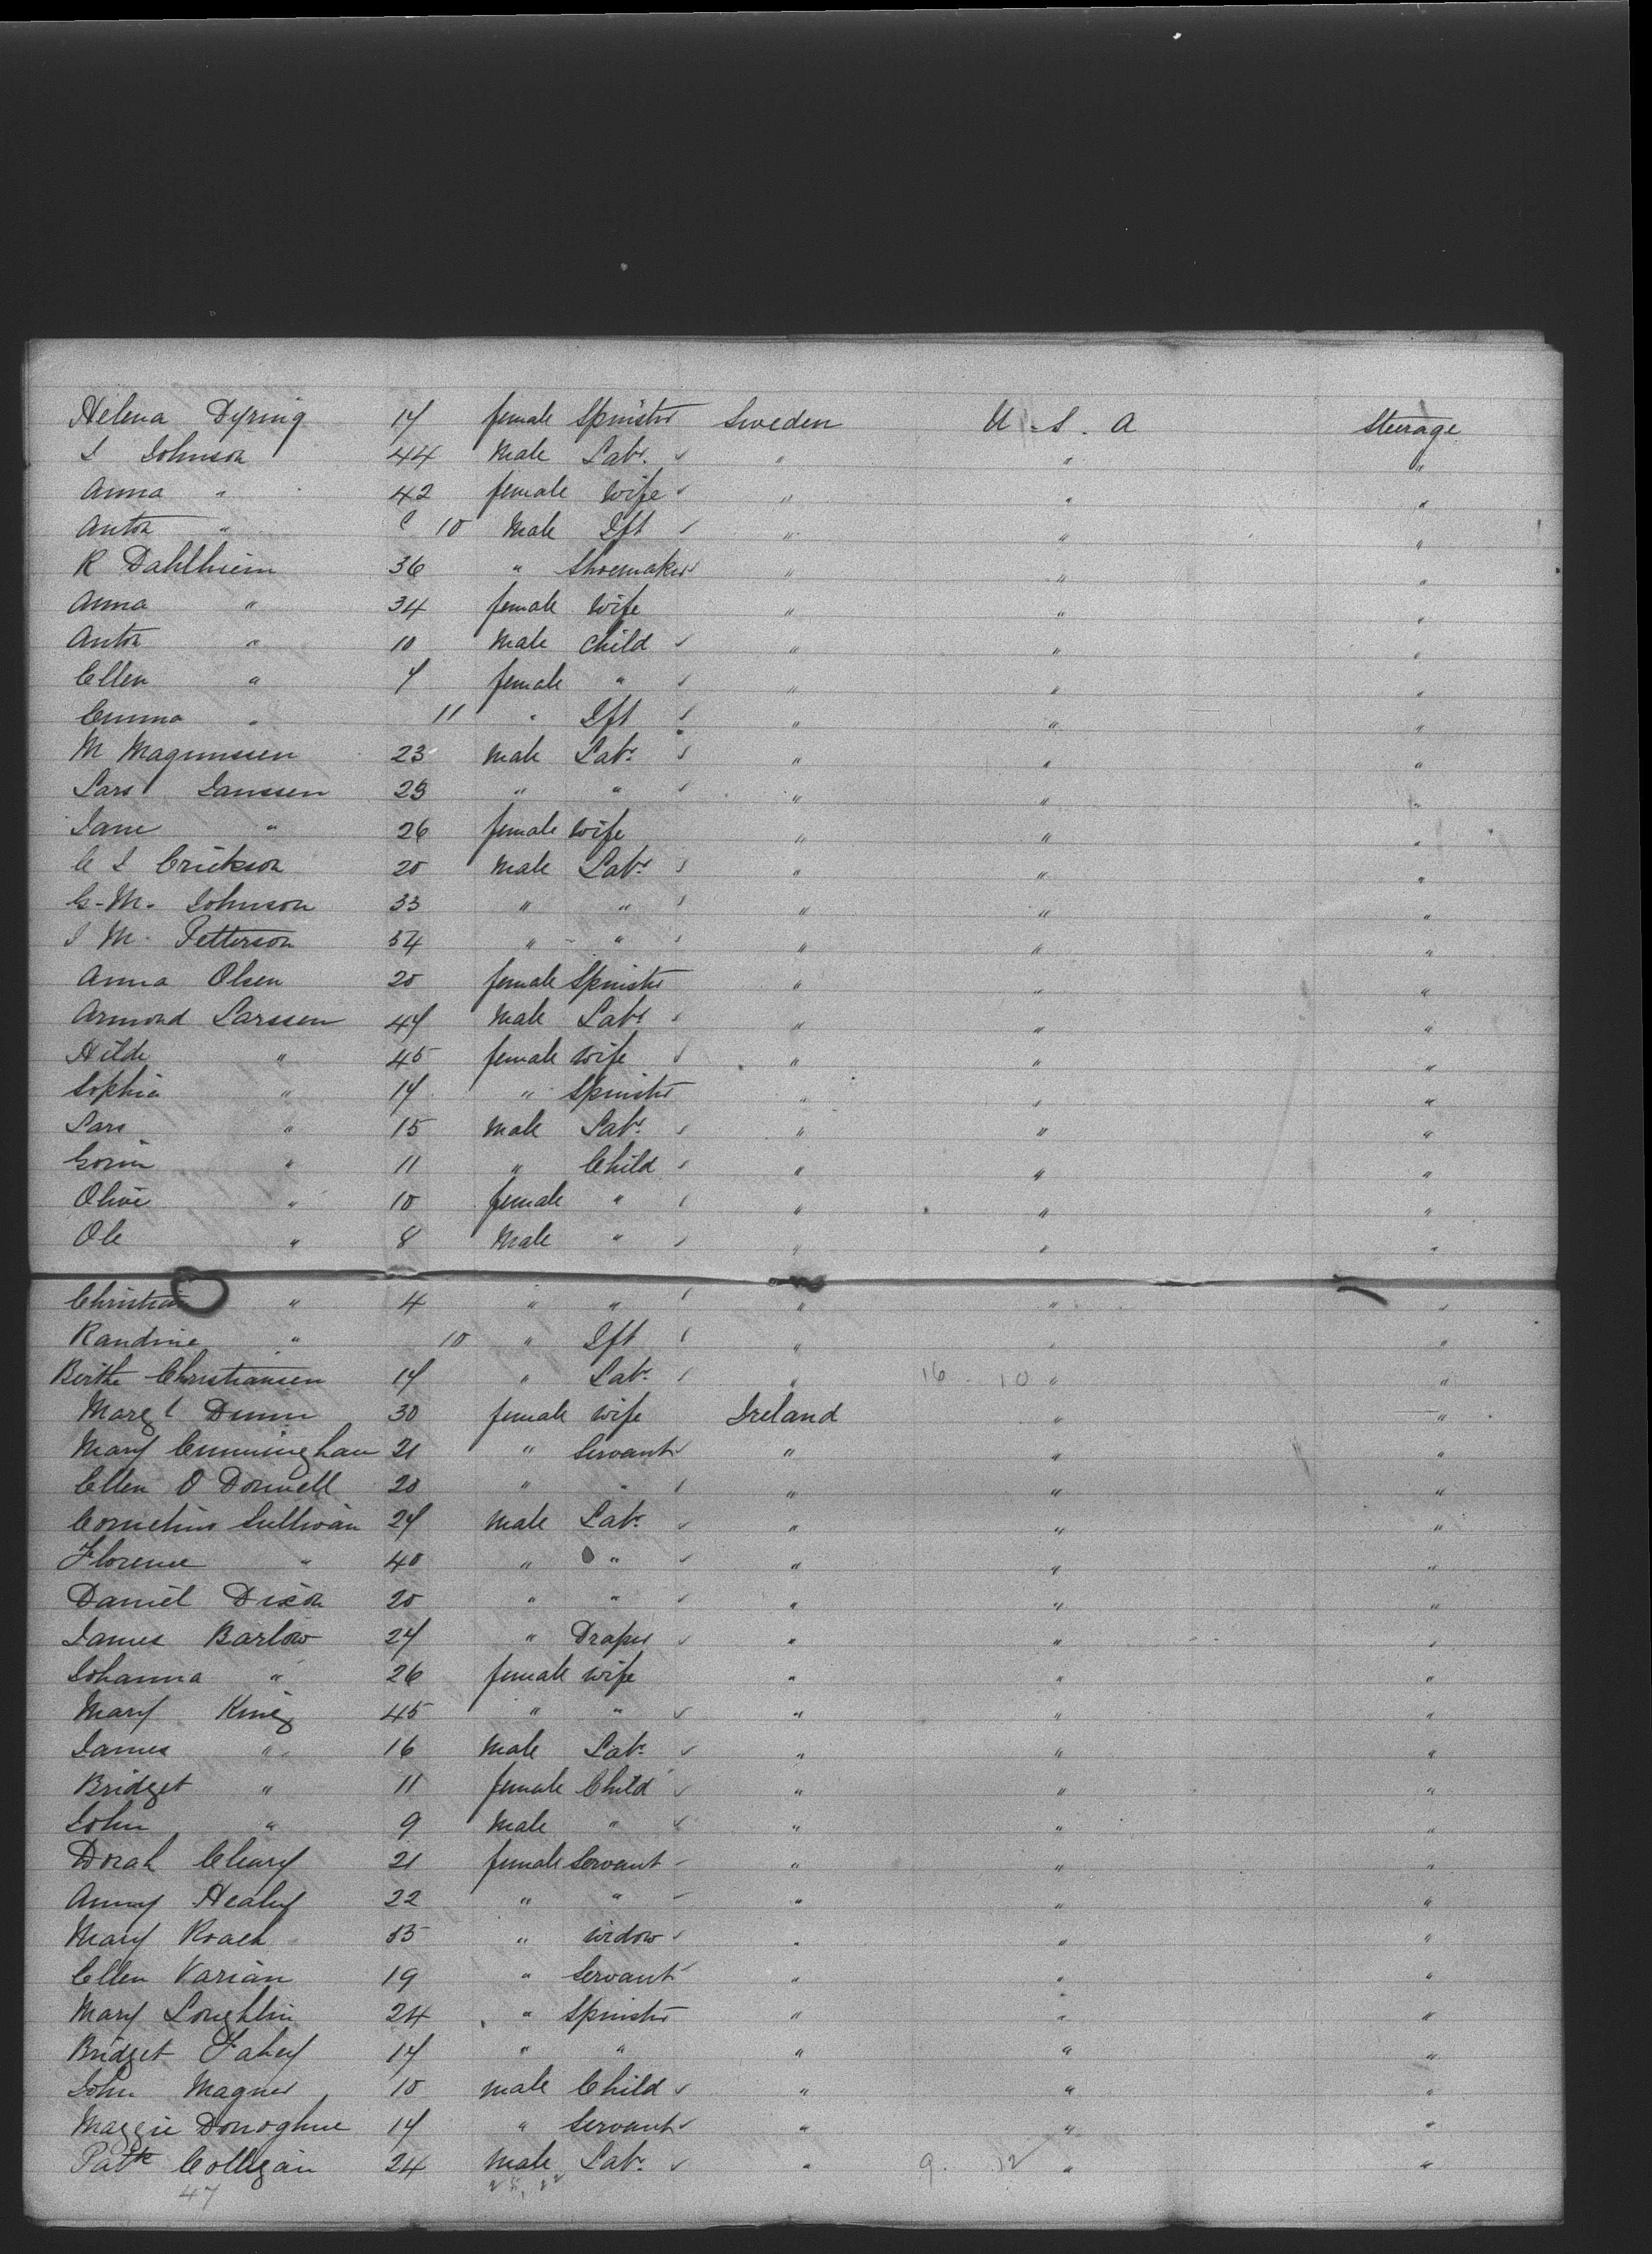 Helena Dyring 17 female Spinster Sweden U.S.A Steerage
I Johnson 44 Male Labr. ✓ " " "
Anna " 42 female Wife ✓ " " "
Anton " 10 Male Ift ✓ " " "
R Dahlhiem 36 " Shoemaker ✓ " " "
Anna " 34 female Wife " " "
Anton " 10 Male Child ✓ " " "
Ellen " 7 female " ✓ " " "
Emma " 11 " Ift ✓ " " "
M Magnussen 23 Male Labr. ✓ " " "
Lars Janssen 29 " " ✓ " " "
Jane " 26 female Wife " " "
C I Erickson 20 Male Labr. ✓ " " "
G. M. Johnson 33 " " ✓ " " "
I M. Petterson 54 " " ✓ " " "
Anna Olsen 20 female Spinster " " "
Armond Larssen 47 Male Labr ✓ " " "
Hilde " 45 female Wife ✓ " " "
Sophia " 17 " Spinster " " "
Lars " 15 Male Labr. ✓ " " "
" 11 " Child ✓ " " "
Olive " 10 female " ✓ " " "
Ole " 8 Male " ✓ " " "
Christian " 4 " " ✓ " " "
Randine " 10 " Ift ✓ " " "
Berthe Christiansen 17 " Labr. ✓ " 16 . 10 " "
Margt Dunn 30 female Wife Ireland " "
Mary Cunningham 21 " Servant ✓ " " "
Ellen O Donnell 20 " " ✓ " " "
Cornelius Sullivan 27 Male Labr. ✓ " " "
Florence " 40 " " ✓ " " "
Daniel Dixon 20 " " ✓ " " "
James Barlow 27 " Draper ✓ " " "
Johanna " 26 female Wife " " "
Mary King 45 " " ✓ " " "
James " 16 Male Labr. ✓ " " "
Bridget " 11 female Child ✓ " " "
John " 9 Male " ✓ " " "
Dorah Cleary 21 female Servant ✓ " " "
Anny Healy 22 " " ✓ " " "
Mary Roach 55 " Widow ✓ " " "
Ellen Varian 19 " Servant ✓ " " "
Mary Loughlin 24 " Spinster " " "
Bridget Fahey 17 " " " " "
John Magner 10 Male Child ✓ " " "
Maggie Donoghue 17 " Servant ✓ " " "
Patk Colligan 24 Male Labr. ✓ " 9. 12 " "
47 25, 22